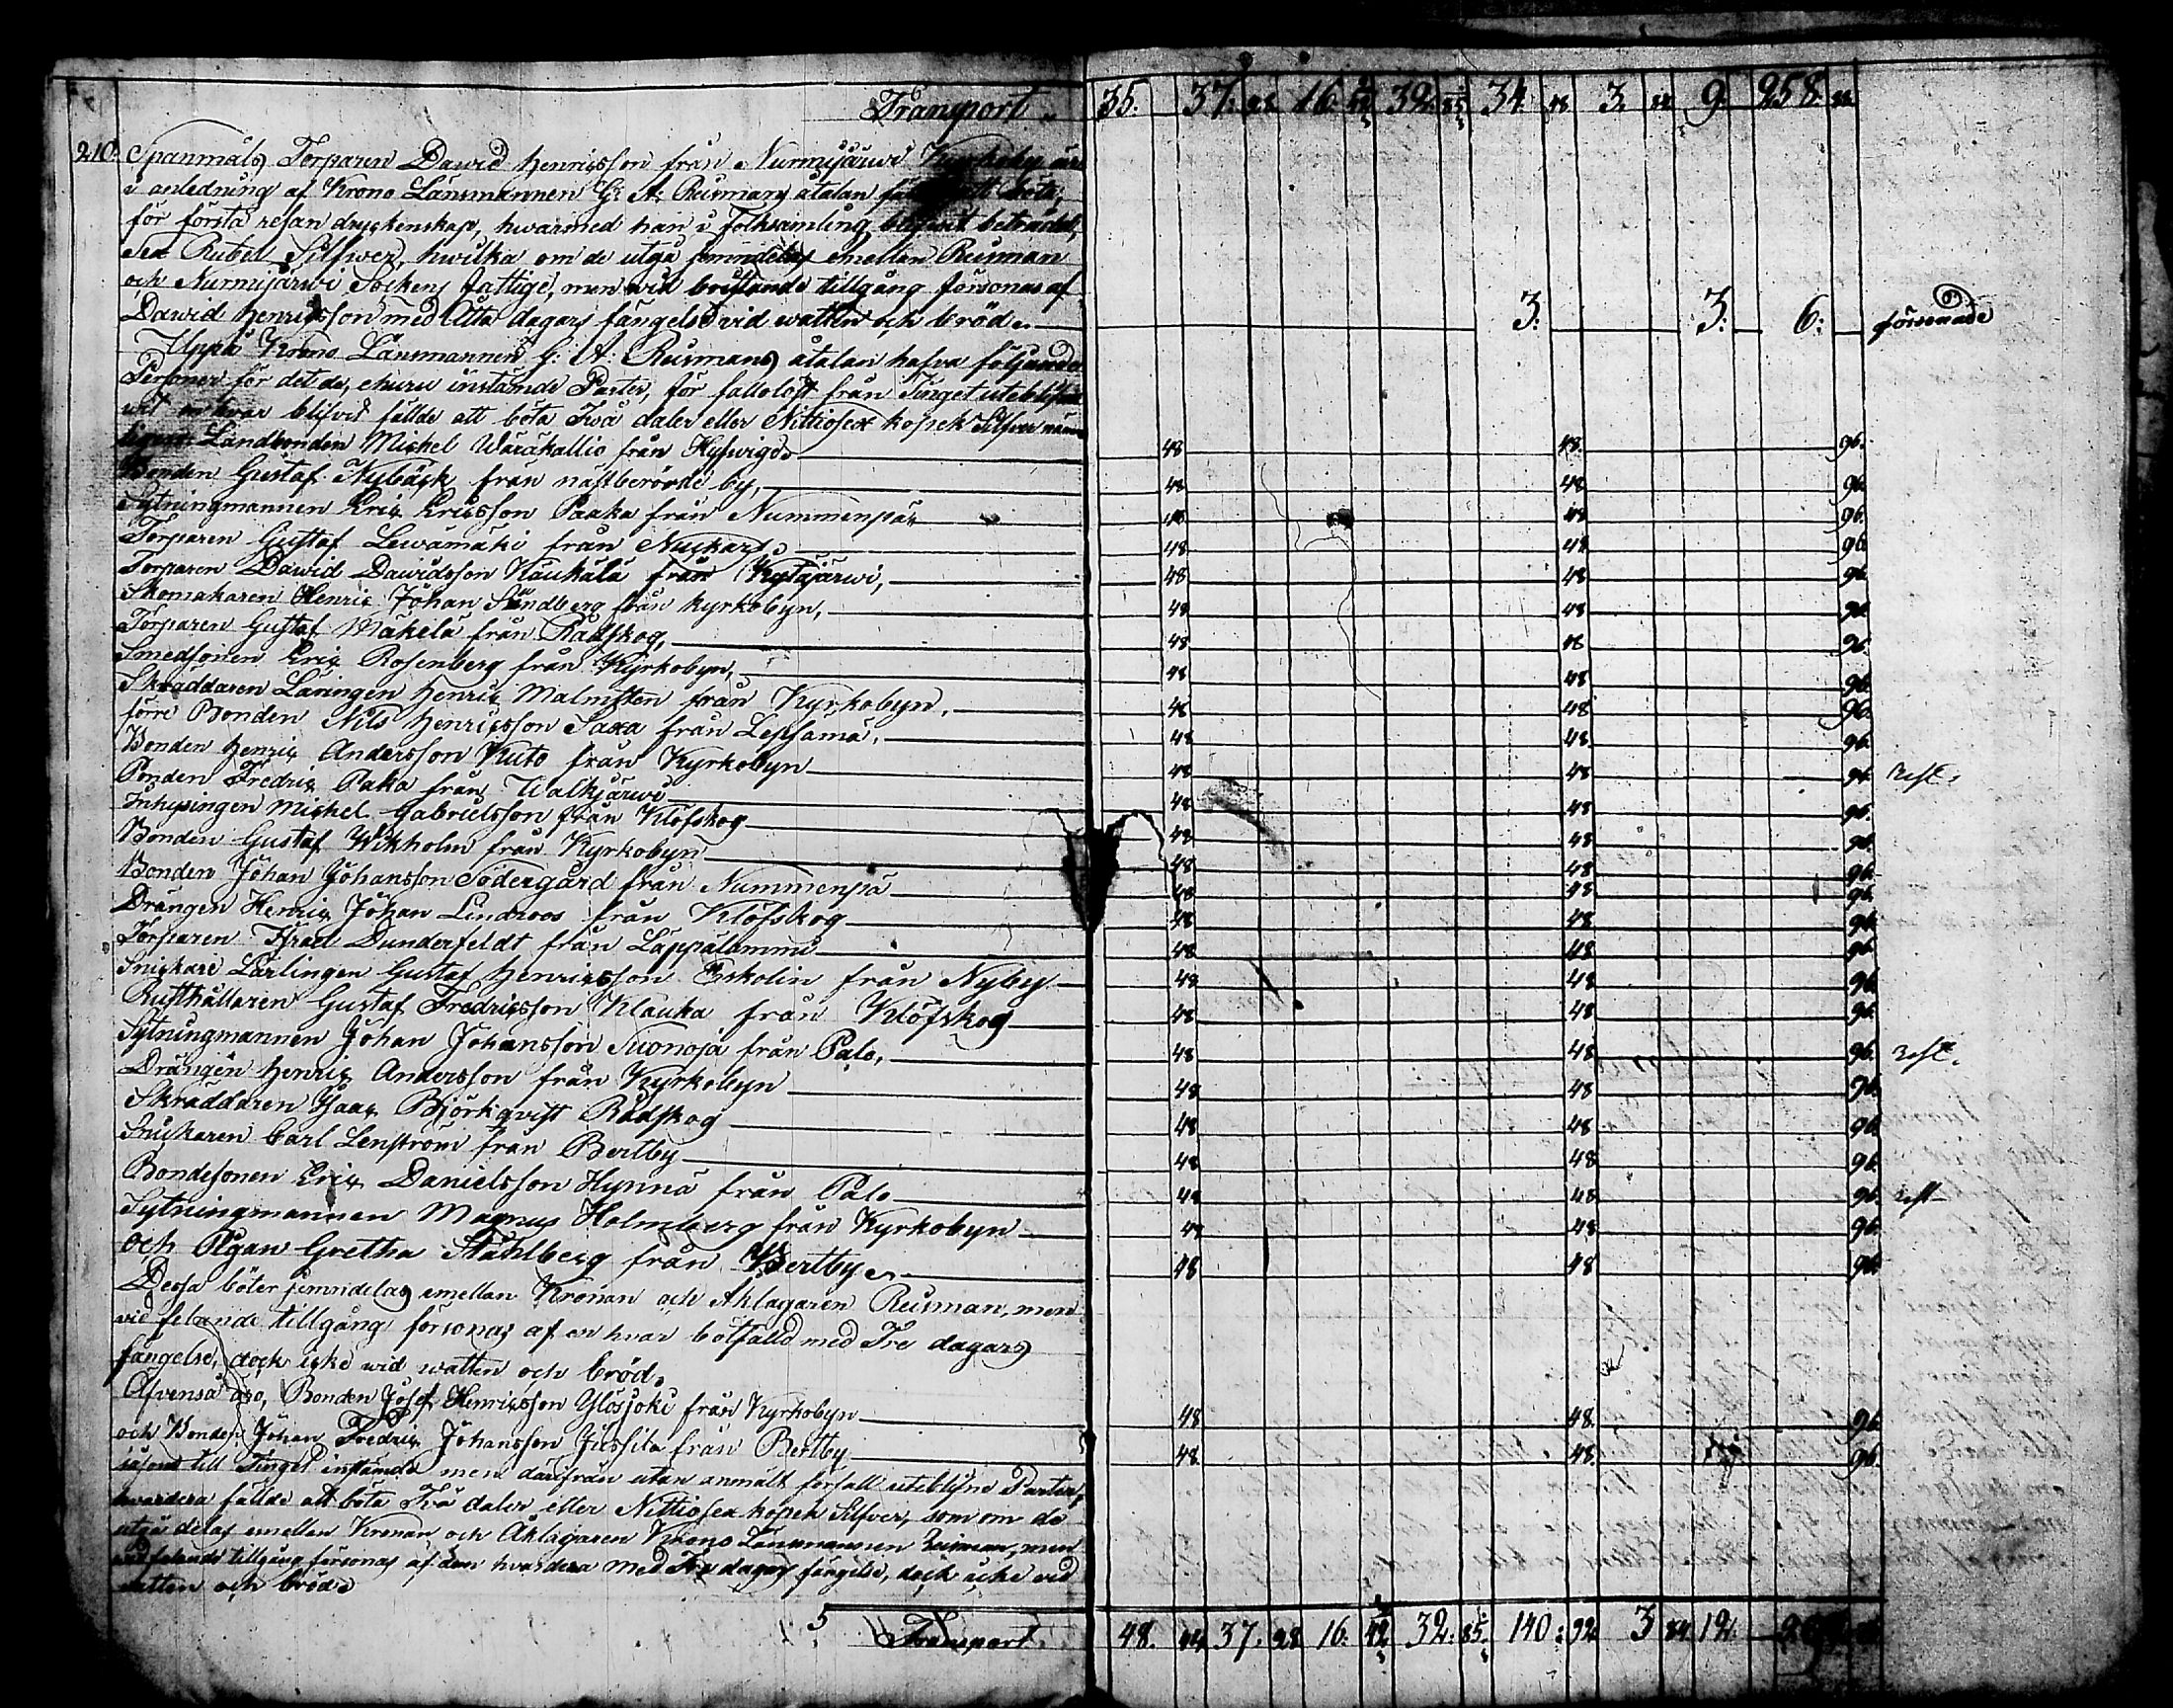 Transport 35. 37. 28 16. 42 32. 85 34. 48 3. 84 9. 258.
210. Spanmåls Torparen Dawid Henricsson från Nurmijärwi Kyrkoby är
i anledning af Krono Länsmannen G: A: Reimans åtalan att böta,
för första resan dryckenskap, hwarmed han i folksamling blifwit beträdd,
Sex Rubel Silfwer, hwilka om de utgå emellan Reiman
och Nurmijärwi Sockens fattige, men wid bristande tillgång försonas af
Dawid Henricsson med Åtta dagars fängelse vid watten och bröd. 3: 3: 6: försonade
Uppå Krono Länsmannen G: A: Reimans åtalan hafva följande
Personer för det de, ehuru instämde Parter, för fallolöst från Tinget uteblifvit
en hvar blifvit fällde att böta Två daler eller Nittiosex kopek Silfver
Landbonden Michel Wäräkallio från Hyfvinge 48 48. 96.
Bonden Gustaf Nybäck från nästberörde by, 48 48 96.
Sytningmannen Eric Ericsson Paaka från Nummenpää 48 48 96.
Torparen Gustaf Lewämäki från Nuckars 48 48 96
Torparen Dawid Dawidsson Haukala från Kytäjärwi, 48 48 96.
Skomakaren Henric Johan Sandberg från kyrkobyn, 48 48 96.
Torparen Gustaf Mäkelä från Rådskog, 48 48 96
Smedsonen Eric Rosenberg från Kyrkobyn, 48 48 96.
Skräddaren Läringen Henric Malmsten från Kyrkobyn, 48 48 96.
förre Bonden Nils Henricsson Saxa från Lepsämä, 48 48. 96.
Bonden Henric Andersson Kuto från Kyrkobyn 48 48 96. rest.
Bonden Fredric Paka från Walkjärwi 48 48 96.
Inhysingen Michel Gabrielsson från Klöfskog 48 48 96.
Bonden Gustaf Wikholm från Kyrkobyn 48 48 96.
Bonden Johan Johansson Södergård från Nummenpä 48 48 96.
Drängen Henric Johan Lindroos från Klöfskog 48 48 96.
Torparen Israel Dunderfeldt från Läppälammi 48 48 96.
Snickare Lärlingen Gustaf Henricsson Eskolin från Nyby 48 48 96
Rusthållaren Gustaf Fredricsson Klauka från Klöfskog 48 48 96.
Sytningmannen Johan Johansson Suonoja från Palo, 48 48 96. rest.
Drängen Henric Andersson från Kyrkobyn 48 48 96.
Skräddaren Isaac Björkqvist Rådskog 48 48 96
Snickaren Carl Lenström från Bertby 48 48 96.
Bondesonen Eric Danielsson Hynnä från Palo 48 48 96. rest
Sytningmannen Magnus Holmberg från Kyrkobyn 48 48 96.
och Pigan Gretha Ståhlberg från Bertby 48 48 96.
Dessa böter femndelas emellan Kronan och Åklagaren Reiman, men
vid felande tillgång försonas af en hvar bötfälld med Tre dagars
fängelse, dock icke wid watten och bröd.
Äfvenså äro, Bonden Josef Henricsson Ylösjoki från Kyrkobyn 48 48. 96.
och Bonden Johan Fredric Johansson Jussila från Bertby 48 48. 96.
såsom till Tinget instämde men därifrån utan anmält förfall uteblifne Parter,
hvardera fällde att böta Två daler eller Nittiosex kopek Silfver, som om de
utgå delas emellan Kronan och Åklagaren Krono Länsmannen Reiman, men
vid felande tillgång försonas af dem hvardera med Tre dagars fängelse, dock icke vid
watten och bröd
5 Transport. 48. 44 37. 28 16: 42 32. 85. 140: 92 3 84 12.